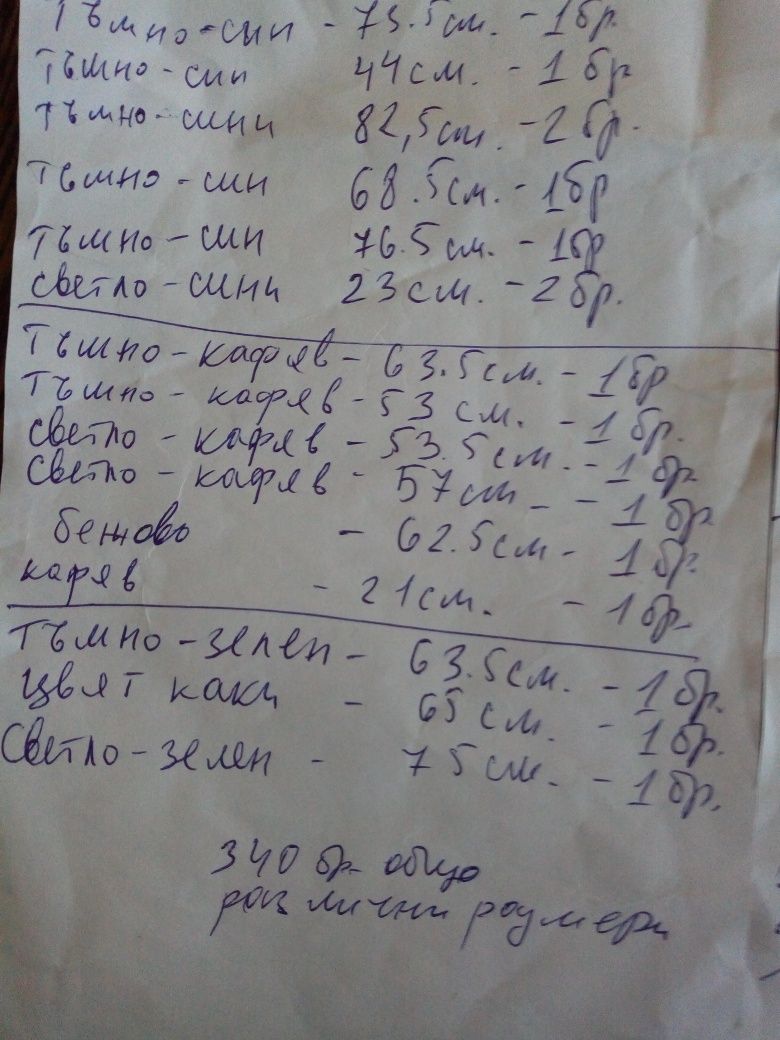 Тъмно-син - 73.5см. - 1бр
Тъмно-син 44см. - 1бр
Тъмно-сини 82,5см. - 2бр.
Тъмно-син 68.5см. - 1бр
Тъмно-син 76.5см. - 1бр
Светло-сини 23см. - 2бр.
Тъмно-кафяв - 63.5см. - 1бр
Тъмно-кафяв - 53см. - 1бр.
Светло-кафяв - 53.5см. - 1бр
Светло-кафяв - 57см - 1бр
бежово - 62.5см - 1бр.
кафяв - 21см. - 1бр.
Тъмно-зелен - 63.5см. - 1бр.
Цвят каки - 65см. - 1бр.
Светло-зелен - 75см. - 1бр.
340 бр. общо
различни размери